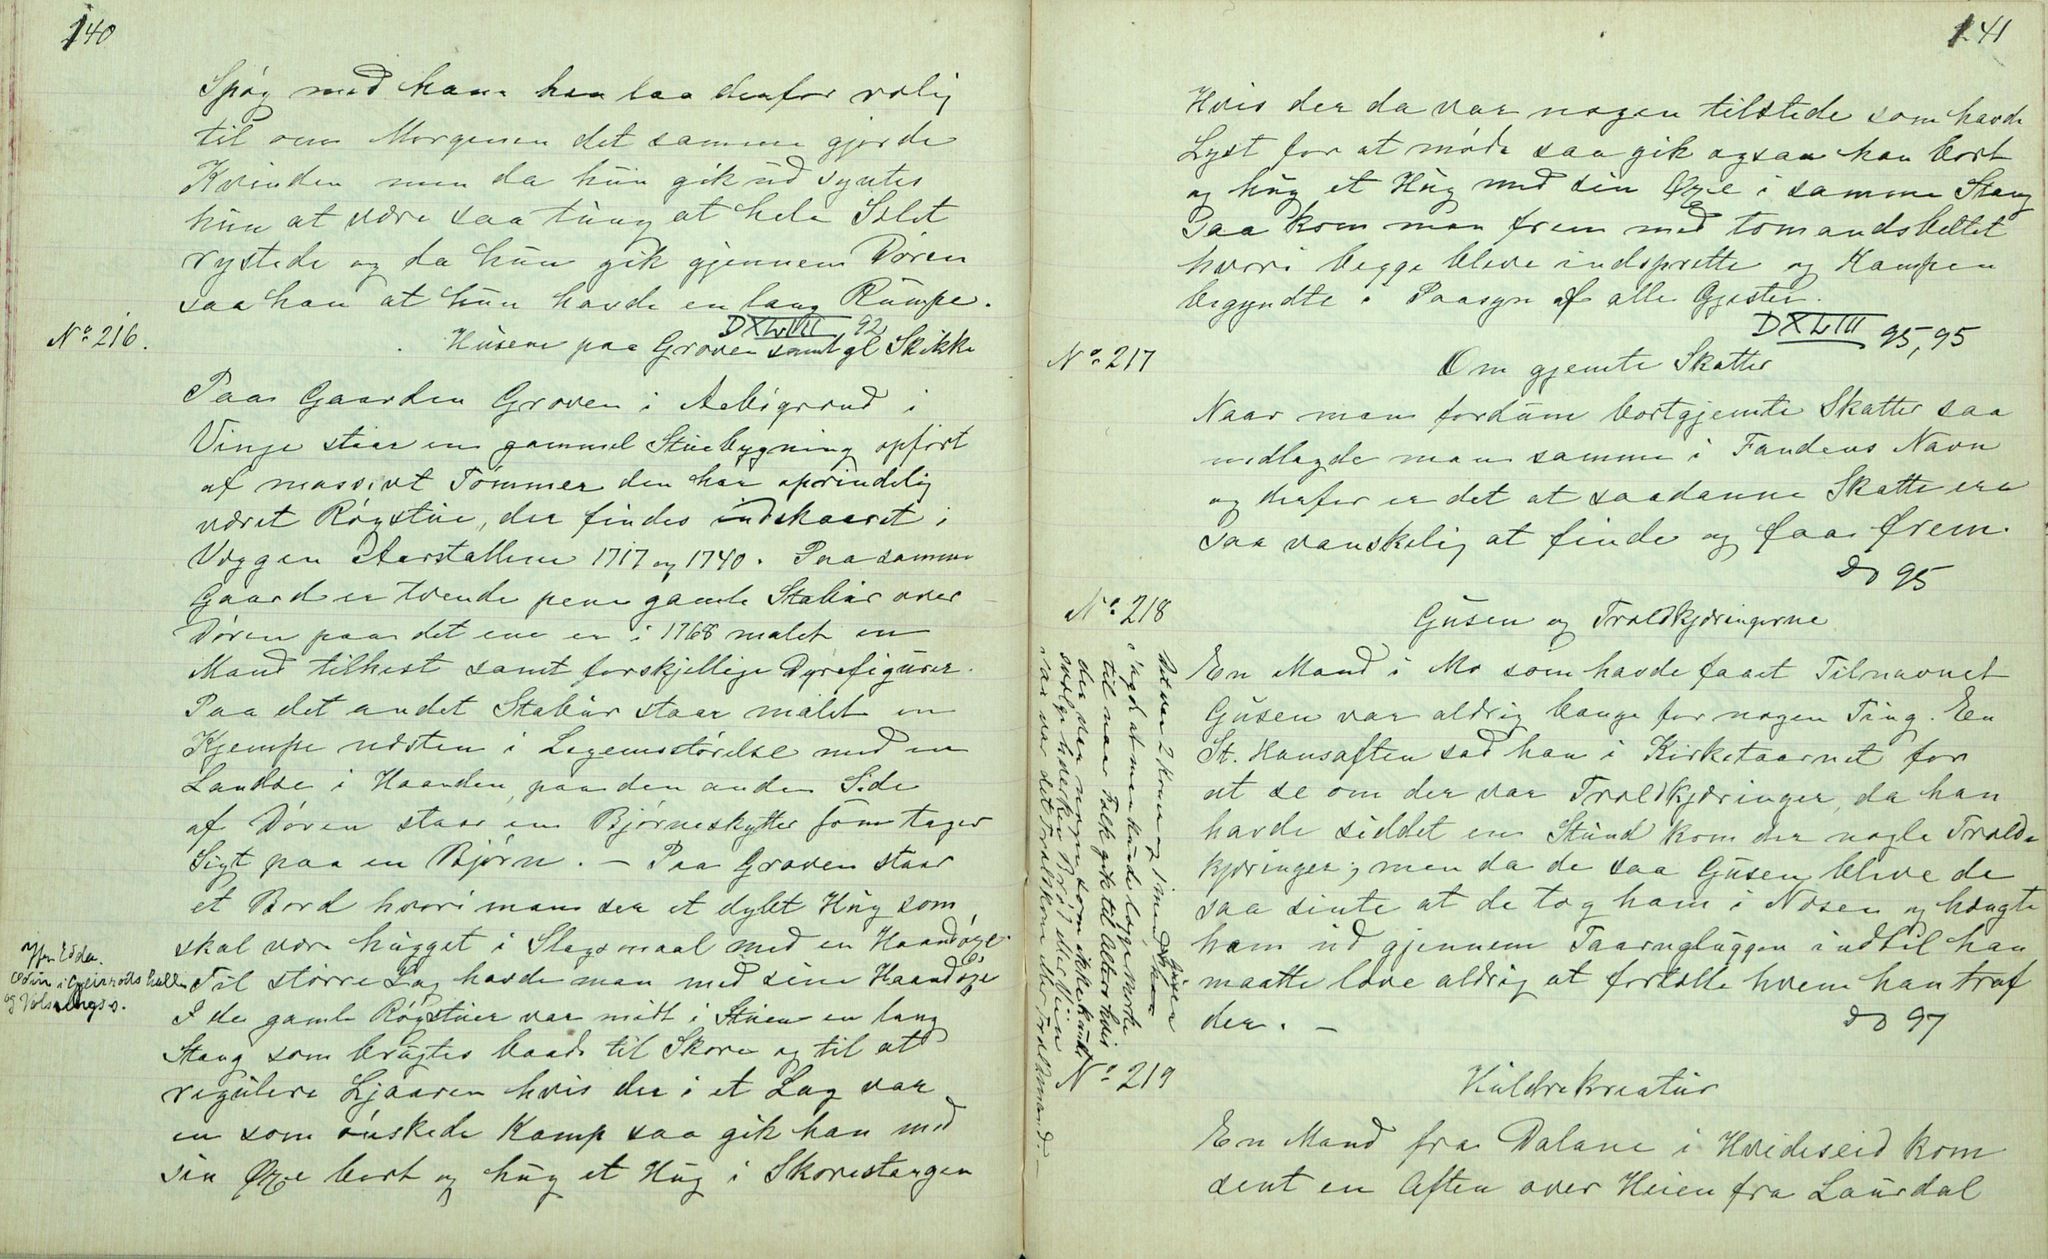 140
Spøg med ham han laa derfor rolig
til om Morgenen det samme gjorde
Kvinden men da hun gik ud syntes
hun at være saa tung at hele Selet
rystede og da hun gik gjennem Døren
saa han at hun havde en lang Rumpe.
DXLVIII 92
No 216.
Husene paa Groven samt gl Skikke
Paa Gaarden Groven i Aabigrend i
Vinje staar en gammel Stuebygning opført
af massivt Tømmer den har oprindelig
været Røgstue, der findes indskaaret i
Væggen Aarstallene 1717 og 1740. Paa samme
Gaard er tvende pene gamle Stabur over
Døren paa det ene er i 1768 malet en
Mand tilhest samt forskjellige Dyrefigurer.
Paa det andet Stabur staar malet en
Kjempe næsten i Legemsstørelse med en
Landse i Haanden, paa den anden Side
af Døren staar en Bjørneskytter som tager
Sigt paa en Bjørn. — Paa Groven staar
et Bord hvori man ser et dybt Hug som
skal være hugget i Slagsmaal med en Haandøxe
Til større Lag havde man med sine Haandøxe
I de gamle Røgstuer var midt i Stuen en lang
Stang som brugtes baade til Skore og til at
regulere Ljaaren hvis der i et Lag var
en som ønskede Kamp saa gik han med
sin Øxe bort og hug et Hug i Skorestangen
jfr Edda.
Odin i Geirrøds hallen
og Volsungs s.
141
Hvis der da var nogen tilstede som havde
Lyst for at møde saa gik ogsaa han bort
og hug et Hug med sin Øxe i samme Stang
Saa kom man frem med tomandsbeltet
hvori begge bleve indsprette og Kampen
begyndte i Paasyn af alle Gjester.
DXLIII 95, 95
No 217
Om gjemte Skatter
Naar man fordum bortgjemte Skatter saa
nedlagde man samme i Fandens Navn
og derfor er det at saadanne Skatte ere
saa vanskelig at finde og faa frem.
Do 95
No 218
Gusen og Troldkjæringerne
En Mand i Mo som havde faaet Tilnavnet
Gusen var aldrig bange for nogen Ting. En
St. Hansaften sad han i Kirketaarnet for
at se om der var Troldkjæringer, da han
havde siddet en Stund kom der nogle Trold-
kjæringer; men da de saa Gusen bleve de
saa sinte at de tog ham i Næsen og hængte
ham ud gjennem Taarngluggen indtil han
maatte love aldrig at fortælle hvem han traf
der. —
Do 97
Det var 2 Koner og 1 Mand Gusen
sagd at man kunde lægge Mærke
til naar Folk gik til Alters hvis
der var nogen som ikke kunde
svælge hverken Brød eller Vin
saa var det Troldkone eller Troldmand. —
No 219
Huldrekreatur
En Mand fra Dalane i Hvideseid kom
sent en Aften over Heien fra Laurdal